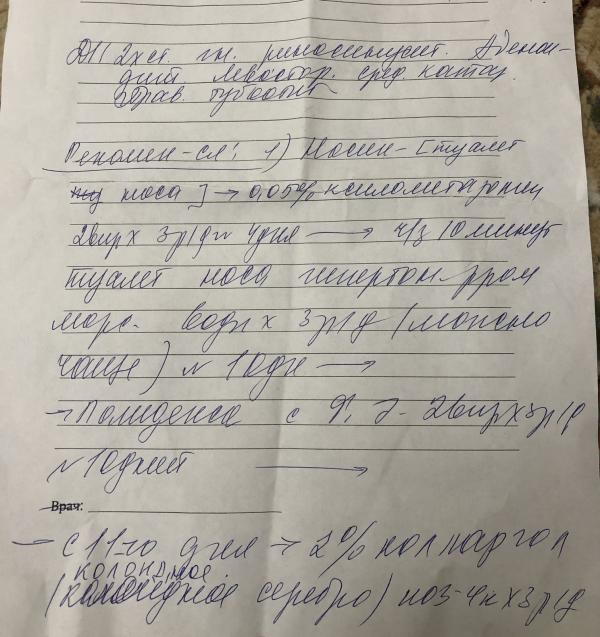 Ds: 2хст. гн. риносинусит. Аденои-
дит. Левостор. сред. катар.
отит. тубоотит
Рекомен-ся: 1) Носик - [туалет
носа] → 0,05% ксилометазолин
2впр х 3 р/д № 4дня → ч/з 10 минут
туалет носа гипертон. р-ром
морс. воды х 3 р/д (можно
чаще) № 10дн →
→ Полидекса с Ф. Э - 2впр х 3 р/д
№ 10дней →
Врач:
→ с 11-го дня → 2% колларгол
колоидное
(серебро) по 3-4к х 3 р/д